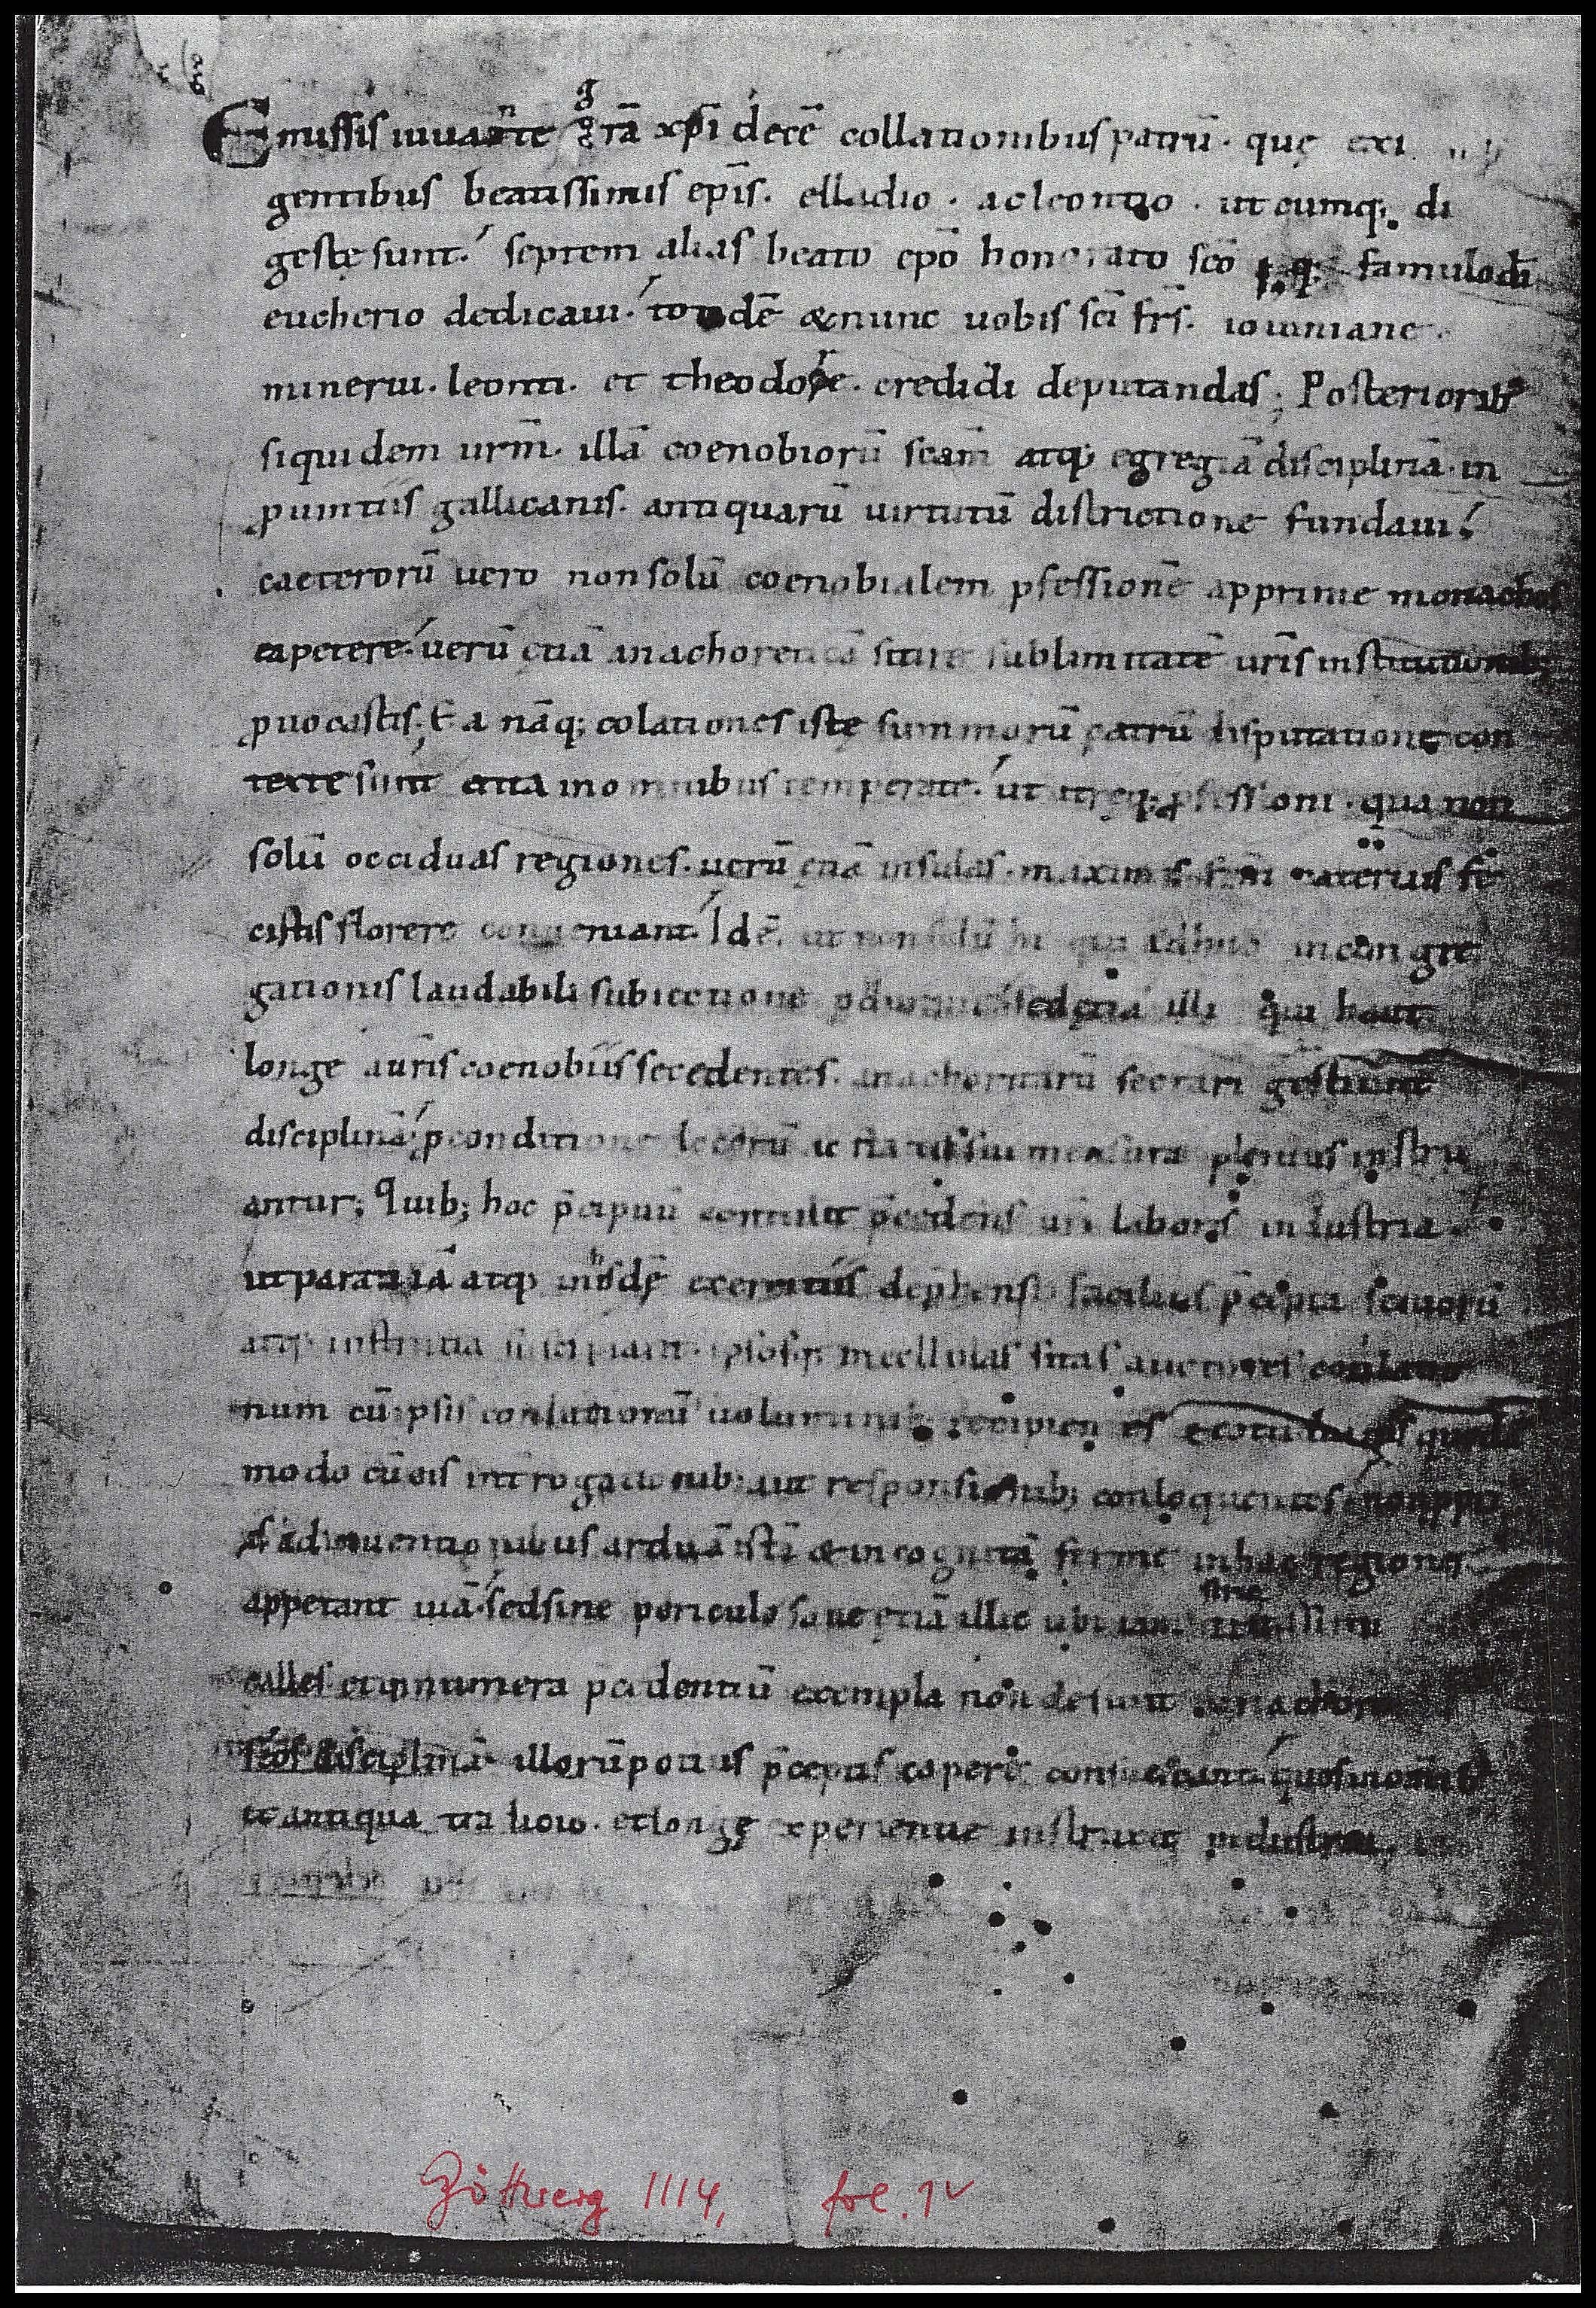 Emissis iuuante grã xp̃i decẽ collationibus patrũ. quę exi
gentibus beatissimis ep̃is. elladio. ac leontio. utcumq; di
gestę sunt. septem alias beato ep̃o honorato sc̃o q; famulo dĩ
eucherio dedicaui. totidẽ & nunc uobis sc̃i fr̃s. iouiniane.
mineruii. leonti. et theodore. credidi deputandas; Posteriorib;
siquidem ur̃m. illã coenobiorũ sc̃am atq; egregiã disciplinã. in
puintiis gallicanis. antiquarũ uirtutũ districtione fundauit
caeterorũ uero non solũ coenobialem pfessionẽ apprime monachos
expetere. uerũ etiã anachoreticã sitire sublimitatẽ ur̃is institutionib;
puocastis; Ea nãq; colationes istę summorũ patrũ disputatione con
textę sunt ita in omnibus temperatę. ut utręq; pfessioni. qua non
solũ occiduas regiones. uerũ etiã insulas. maximis fr̃m cateruis fe
cistis florere conueniant. Idẽ. ut non solũ hi qui adhuc in congre
gationis laudabili subiectione sed etiã illi qui haut
longe a ur̃is coenobiis secedentes. anachoritarũ sectari gestiunt
disciplinã. p conditione locorũ ac status sui mensura plenius instru
antur; Quib; hoc p̃cipuũ contulit p̃cedens ur̃i laboris industria
ut parati iã atq; in hisdẽ exercitiis dep̃hensi facilius p̃cepta seniorũ
atq; instituta suscipiant. ipsosq; in cellulas suas auctores conlatio
num cũ ipsis conlationũ uoluminib; recipientes & cotidianis quodã
modo cũ eis introgationib; aut responsionib; conloquentes non ppri
is adinuentionibus arduã istã & incognitã ferme in hac regione
appetant uiã. sed sine periculosane etiã illic ubi iam
calles et innumera p̃cedentiũ exempla non desunt anachore
seos disciplinã illorũ potius p̃ceptis capere consuescant. quos in omnib;
et antiqua traditio. et longę experientię instruxit industria.
Göttweig 1114, fol. 1v